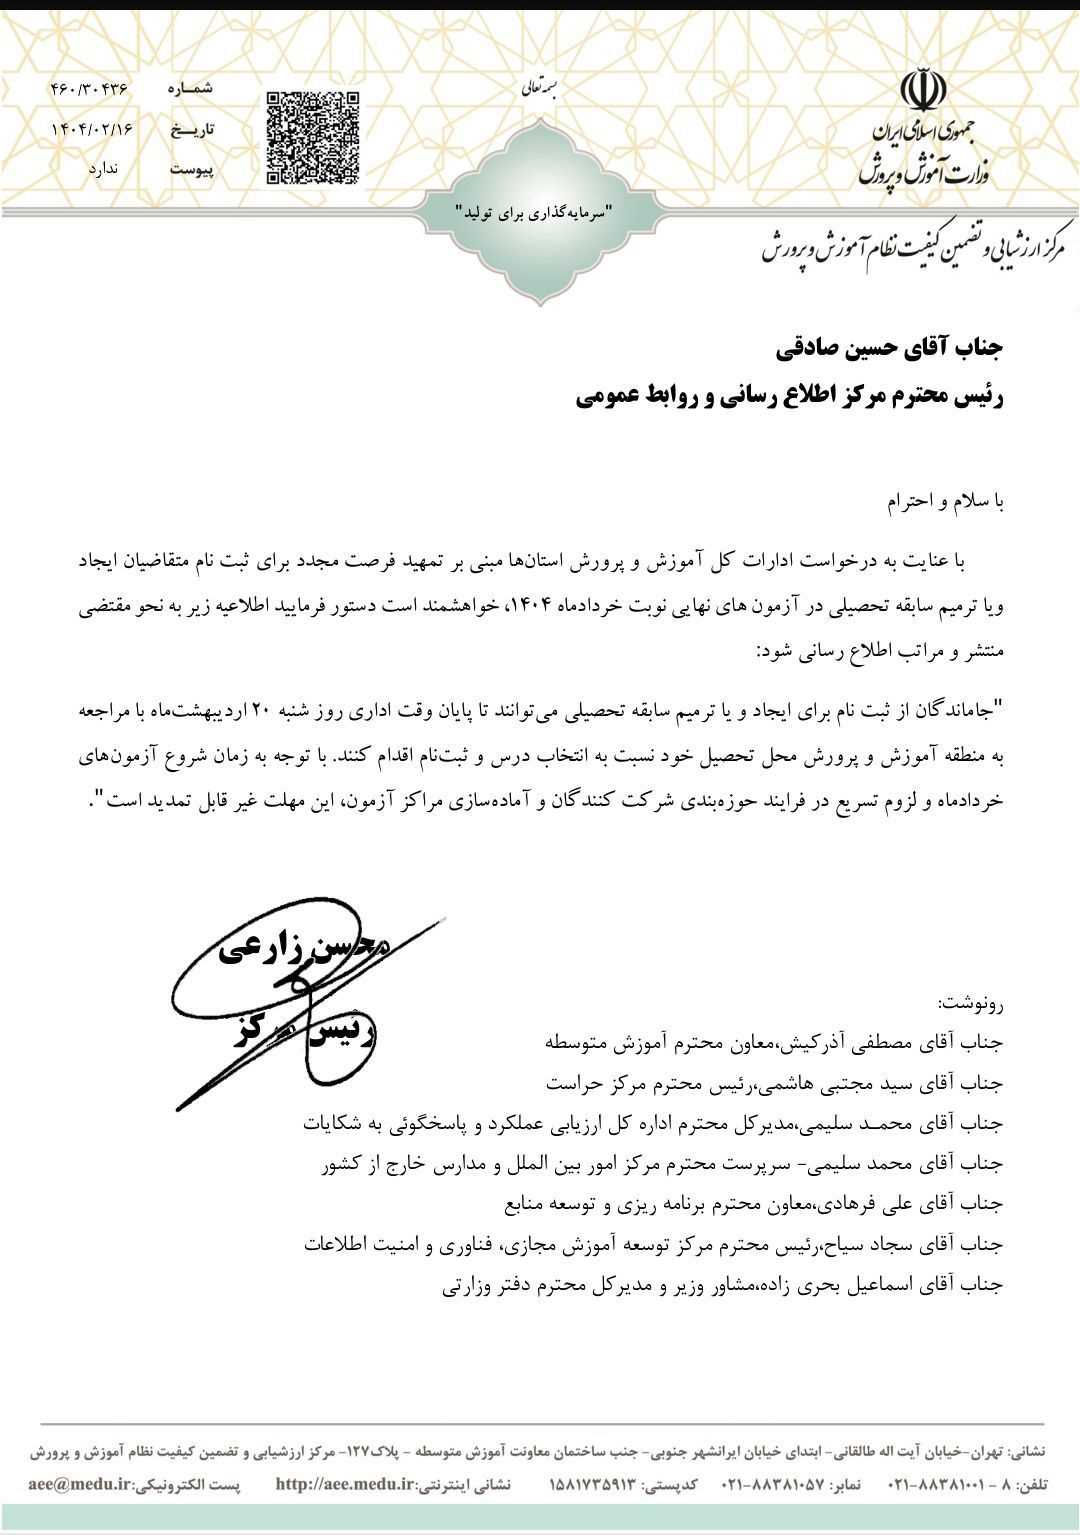 بسمه تعالی
جمهوری اسلامی ایران
وزارت آموزش و پرورش
مرکز ارزشیابی و تضمین کیفیت نظام آموزش و پرورش
شمـاره ۴۶۰/۳۰۴۳۶
تاریـخ ۱۴۰۴/۰۲/۱۶
پیوست ندارد
"سرمایه‌گذاری برای تولید"
جناب آقای حسین صادقی
رئیس محترم مرکز اطلاع رسانی و روابط عمومی
با سلام و احترام
با عنایت به درخواست ادارات کل آموزش و پرورش استان‌ها مبنی بر تمهید فرصت مجدد برای ثبت نام متقاضیان ایجاد
ویا ترمیم سابقه تحصیلی در آزمون های نهایی نوبت خردادماه ۱۴۰۴، خواهشمند است دستور فرمایید اطلاعیه زیر به نحو مقتضی
منتشر و مراتب اطلاع رسانی شود:
"جاماندگان از ثبت نام برای ایجاد و یا ترمیم سابقه تحصیلی می‌توانند تا پایان وقت اداری روز شنبه ۲۰ اردیبهشت‌ماه با مراجعه
به منطقه آموزش و پرورش محل تحصیل خود نسبت به انتخاب درس و ثبت‌نام اقدام کنند. با توجه به زمان شروع آزمون‌های
خردادماه و لزوم تسریع در فرایند حوزه‌بندی شرکت کنندگان و آماده‌سازی مراکز آزمون، این مهلت غیر قابل تمدید است".
محسن زارعی
رئیس مرکز
رونوشت:
جناب آقای مصطفی آذرکیش،معاون محترم آموزش متوسطه
جناب آقای سید مجتبی هاشمی،رئیس محترم مرکز حراست
جناب آقای محمـد سلیمی،مدیرکل محترم اداره کل ارزیابی عملکرد و پاسخگوئی به شکایات
جناب آقای محمد سلیمی- سرپرست محترم مرکز امور بین الملل و مدارس خارج از کشور
جناب آقای علی فرهادی،معاون محترم برنامه ریزی و توسعه منابع
جناب آقای سجاد سیاح،رئیس محترم مرکز توسعه آموزش مجازی، فناوری و امنیت اطلاعات
جناب آقای اسماعیل بحری زاده،مشاور وزیر و مدیرکل محترم دفتر وزارتی
نشانی: تهران-خیابان آیت اله طالقانی- ابتدای خیابان ایرانشهر جنوبی- جنب ساختمان معاونت آموزش متوسطه - پلاک۱۲۷- مرکز ارزشیابی و تضمین کیفیت نظام آموزش و پرورش
تلفن: ۸ - ۸۸۳۸۱۰۰۱-۰۲۱ نمابر: ۸۸۳۸۱۰۵۷-۰۲۱ کدپستی: ۱۵۸۱۷۳۵۹۱۳ نشانی اینترنتی:http://aee.medu.ir پست الکترونیکی:aee@medu.ir